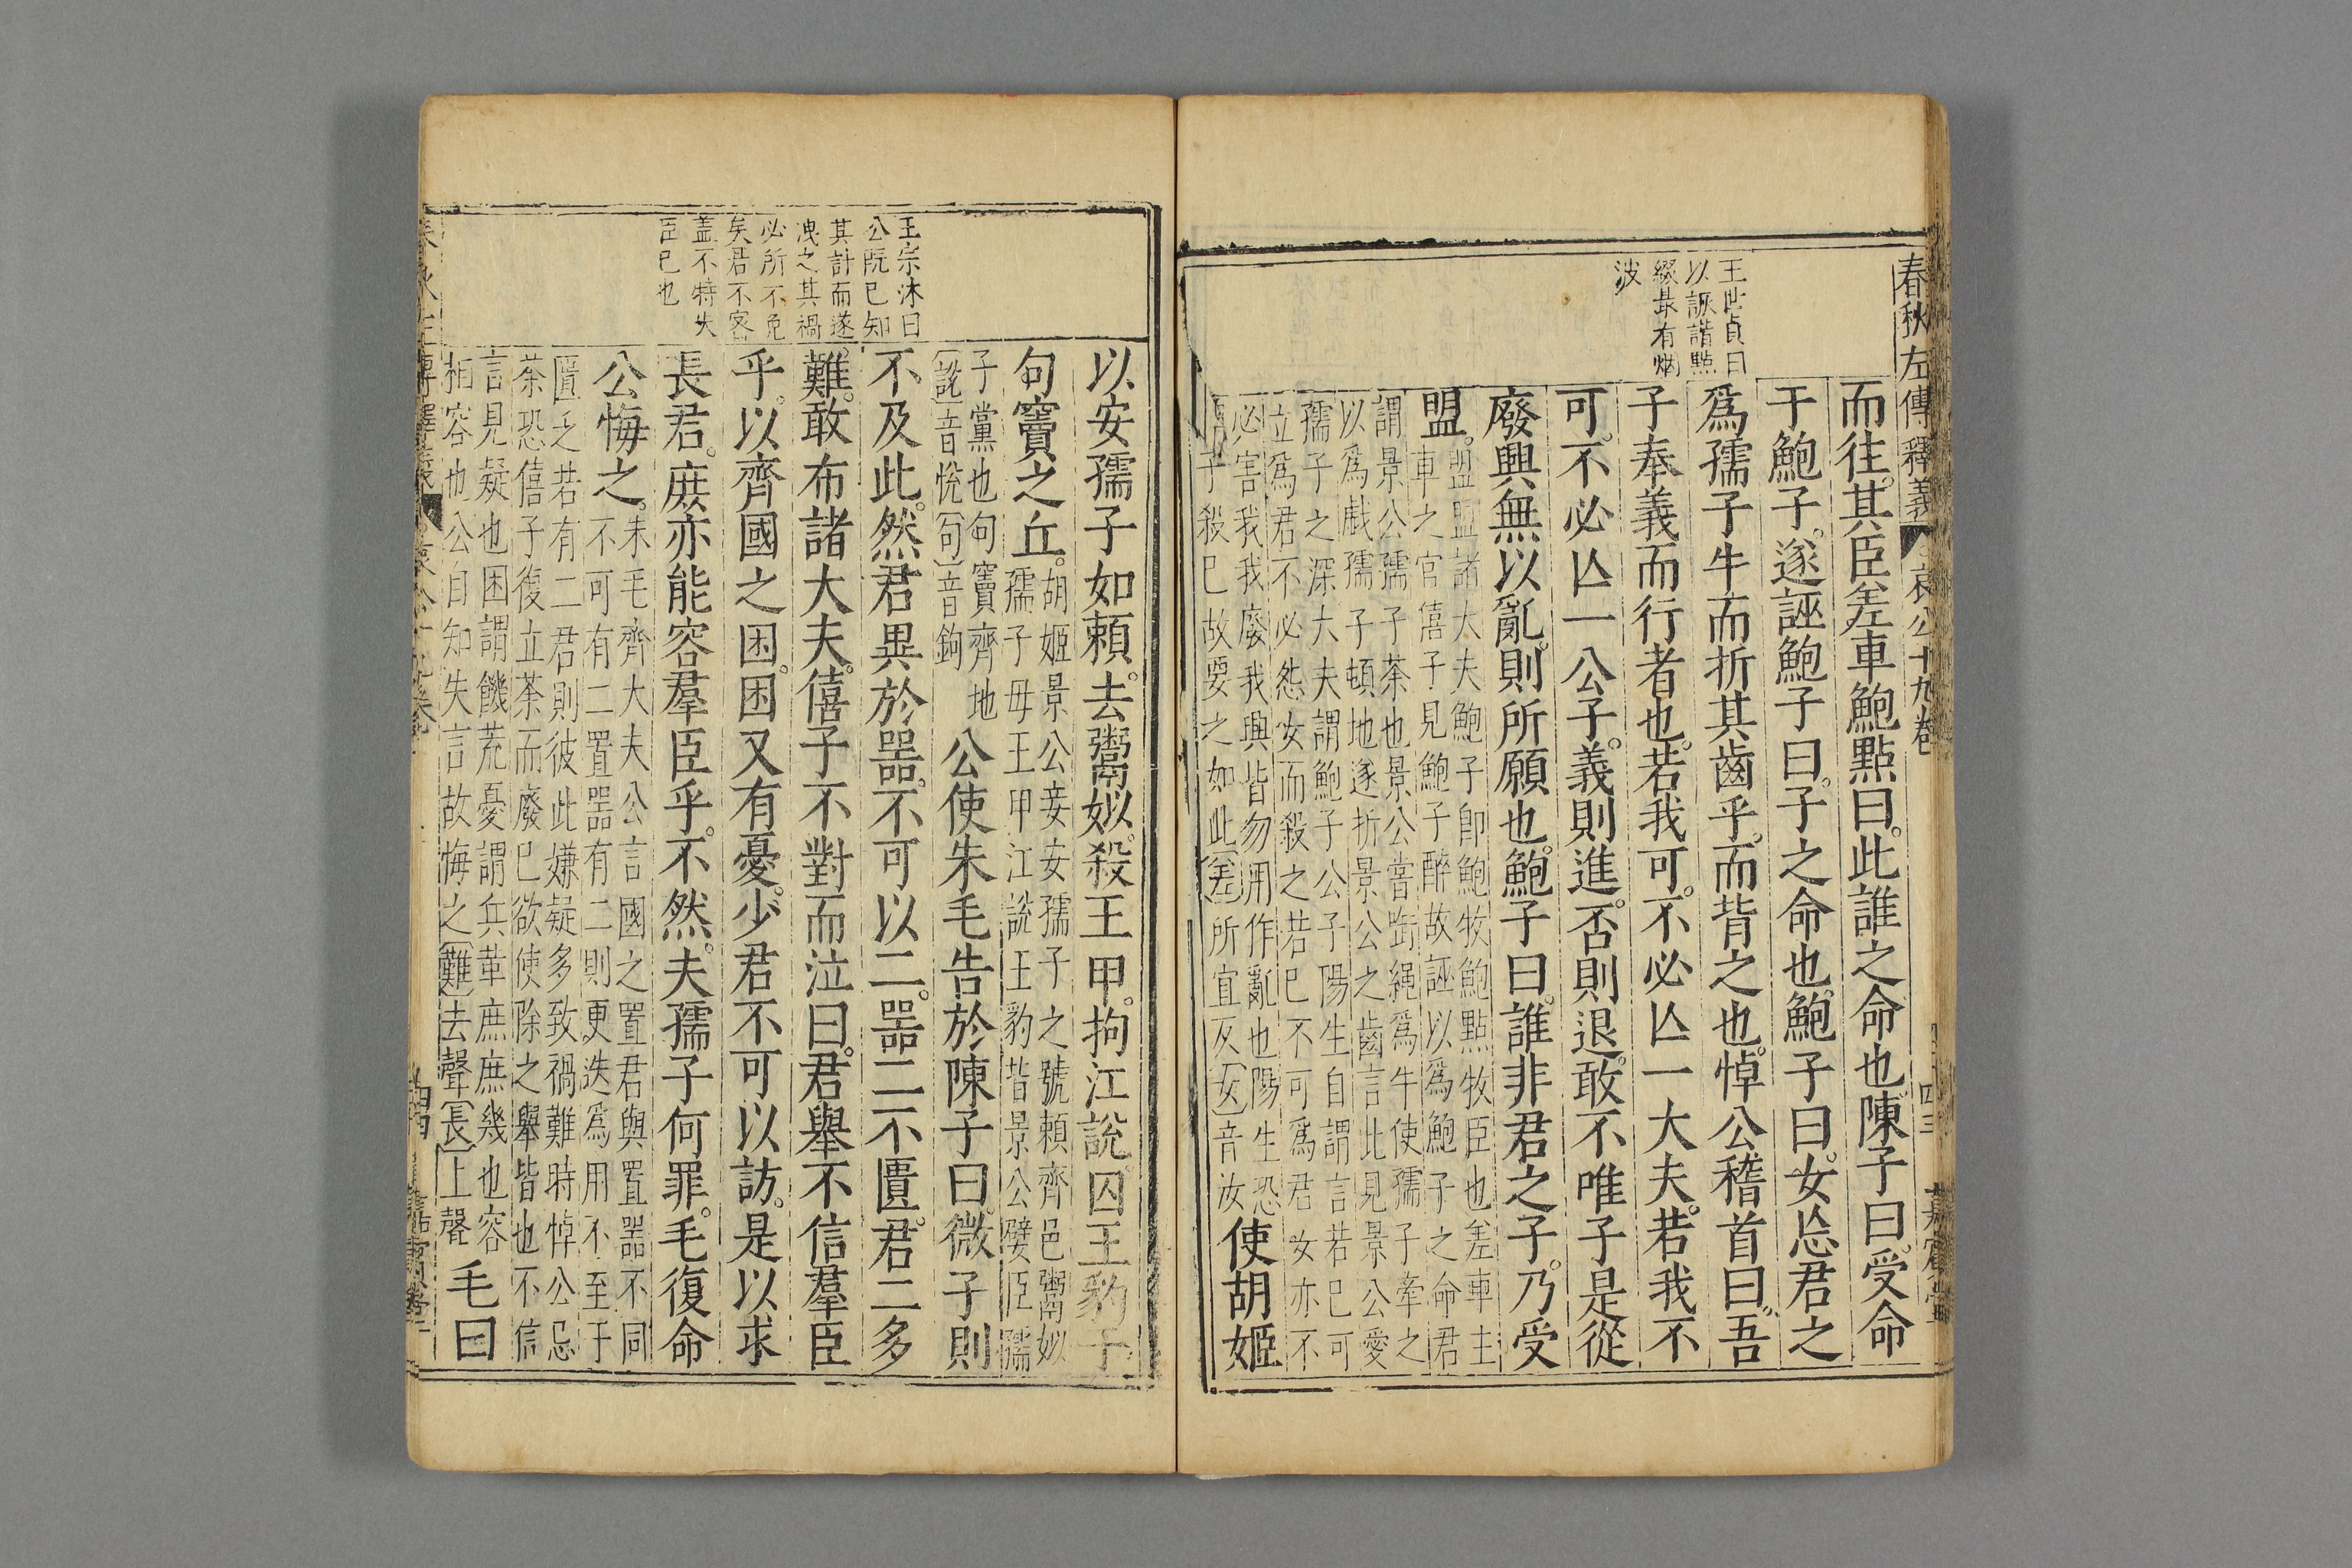 春秋左傳釋義
哀公十九卷
四三
王世貞曰
以誣譖點
綴最有烟
波
而往其臣差車鮑點曰此誰之命也陳子曰受命
于鮑子遂誣鮑子曰子之命也鮑子曰女忘君之
爲孺子牛而折其齒乎而背之也悼公稽首曰吾
子奉義而行者也若我可不必亾一大夫若我不
可不必亾一公子義則進否則退敢不唯子是從
廢興無以亂則所願也鮑子曰誰非君之子乃受
盟
盟盟諸大夫鮑子卽鮑牧鮑點牧臣也差車主
車之官僖子見鮑子醉故誣以爲鮑子之命君
謂景公孺子荼也景公嘗銜繩爲牛使孺子牽之
以爲戲孺子頓地遂折景公之齒言此見景公愛
孺子之深大夫謂鮑子公子陽生自謂言若巳可
立爲君不必怨女而殺之若巳不可爲君女亦不
必害我我廢我與皆勿用作亂也陽生恐
子殺巳故要之如此差所宜反女音汝
使胡姬
王宗沐曰
公旣已知
其計而遂
洩之其禍
必所不免
矣君不密
盖不特失
臣已也
以安孺子如賴去鬻姒殺王甲拘江說囚王豹于
句竇之丘
胡姬景公妾安孺子之號賴齊邑鬻姒
孺子毋王甲江說王豹皆景公嬖臣孺
子黨也句竇齊地
說音悅句音鉤
公使朱毛告於陳子曰微子則
不及此然君異於器不可以二器二不匱君二多
難敢布諸大夫僖子不對而泣曰君舉不信羣臣
乎以齊國之困困又有憂少君不可以訪是以求
長君庶亦能容羣臣乎不然夫孺子何罪毛復命
公悔之
朱毛齊大夫公言國之置君與置器不同
不可有二置器有二則更迭爲用不至于
匱乏若有二君則彼此嫌疑多致禍難時悼公忌
荼恐僖子復立荼而廢巳欲使除之舉皆也不信
言見疑也困謂饑荒憂謂兵革庶庶幾也容
相容也公自知失言故悔之難去聲長上聲
毛曰
四四